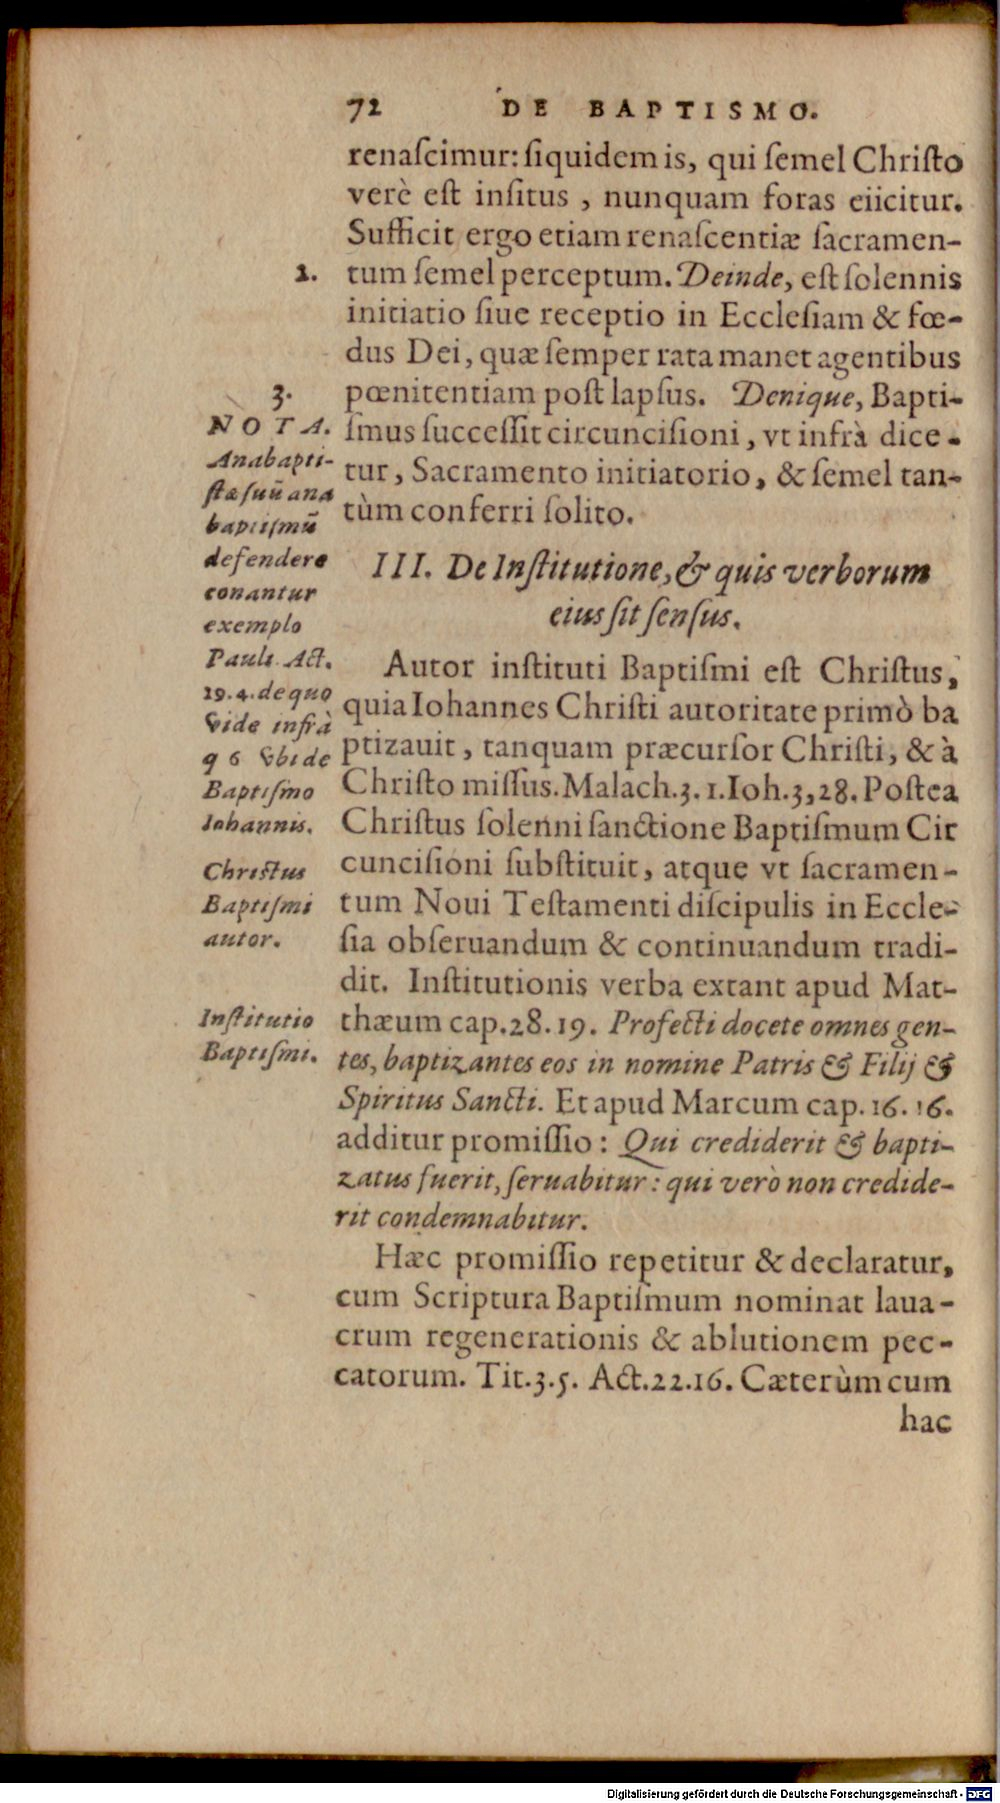 72 DE BAPTISMO.
renaſcimur: ſiquidem is, qui ſemel Chriſto
verè eſt inſitus , nunquam foras eiicitur.
Sufficit ergo etiam renaſcentiæ ſacramen-
2.
tum ſemel perceptum. Deinde, eſt ſolennis
initiatio ſiue receptio in Eccleſiam & fœ-
dus Dei, quæ ſemper rata manet agentibus
3.
pœnitentiam poſt lapſus. Denique, Bapti-
ſmus ſucceſſit circunciſioni, vt infrà dice-
tur, Sacramento initiatorio, & ſemel tan-
tùm conferri ſolito.
NOTA.
Anabapti-
ſtæ ſuū ana
baptiſmū
defendere
conantur
exemplo
Pauli Act.
19.4. de quo
vide infrà
q 6 vbi de
Baptiſmo
Iohannis.
III. De Inſtitutione, & quis verborum
eius ſit ſenſus.
Autor inſtituti Baptiſmi eſt Chriſtus,
quia Iohannes Chriſti autoritate primò ba
ptizauit, tanquam præcurſor Chriſti, & à
Chriſto miſſus. Malach.3.1. Ioh.3,28. Poſtea
Chriſtus ſolenni ſanctione Baptiſmum Cir
cunciſioni ſubſtituit, atque vt ſacramen-
tum Noui Teſtamenti diſcipulis in Eccle-
ſia obſeruandum & continuandum tradi-
dit. Inſtitutionis verba extant apud Mat-
thæum cap.28.19. Profecti docete omnes gen-
tes, baptizantes eos in nomine Patris & Filij &
Spiritus Sancti. Et apud Marcum cap.16.16.
additur promiſſio: Qui crediderit & bapti-
zatus fuerit, ſeruabitur: qui verò non credide-
rit condemnabitur.
Chriſtus
Baptiſmi
autor.
Inſtitutio
Baptiſmi.
Hæc promiſſio repetitur & declaratur,
cum Scriptura Baptiſmum nominat laua-
crum regenerationis & ablutionem pec-
catorum. Tit.3.5. Act.22.16. Cæterùm cum
hac
Digitalisierung gefördert durch die Deutsche Forschungsgemeinschaft - DFG